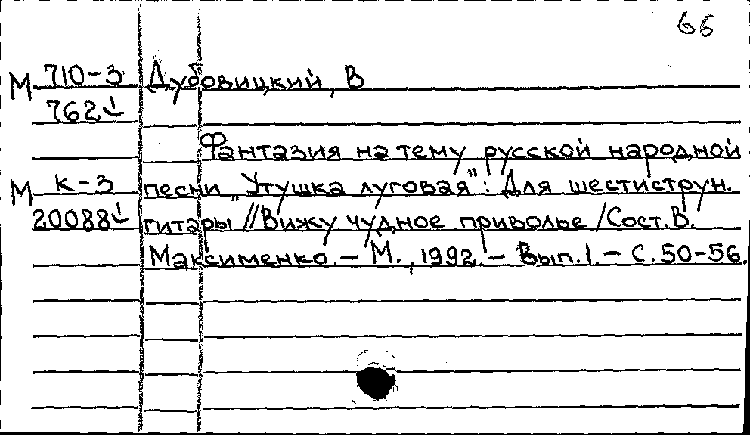 66
М 710-3 Дубовицкий, В
762↓
Фантазия на тему русской народной
М К-3 песни „Утушка луговая": Для шестиструн.
20088↓ гитары // Вижу чудное приволье / Сост. В.
Максименко. – М., 1992. – Вып. 1. – С. 50-56.